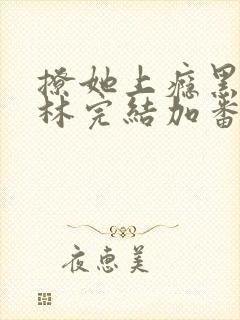 撩她上瘾黑
林完結加番
夜惠美